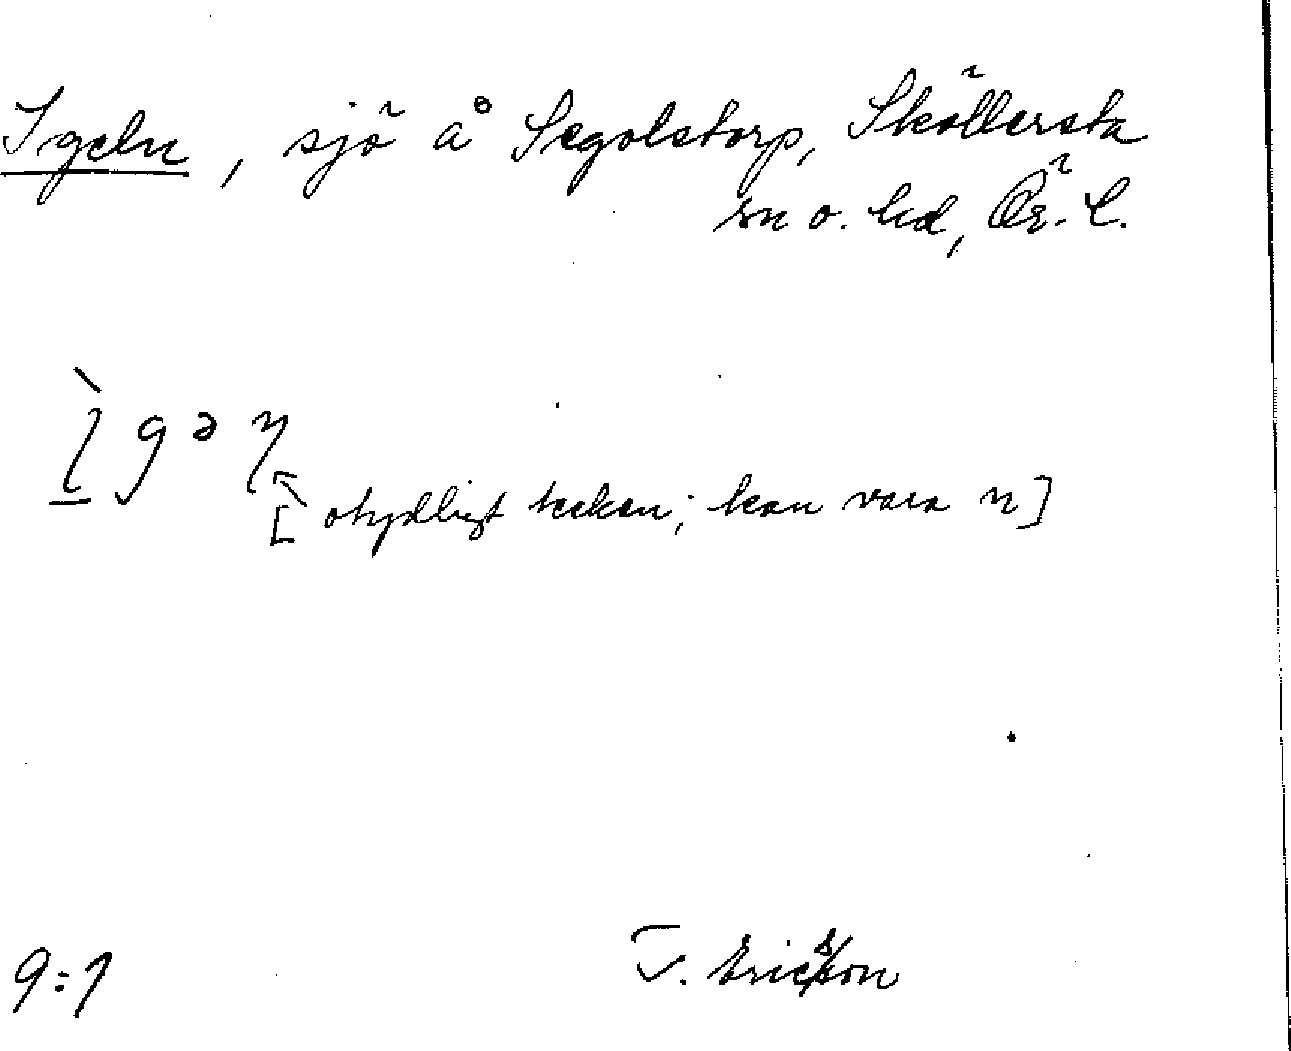 Igeln, sjö å Segolstorp, Sköllersta
sn o. hd, Ör. l.
ìgəη
[otydligt tecken; kan vara n]
T. Ericsson
9:1